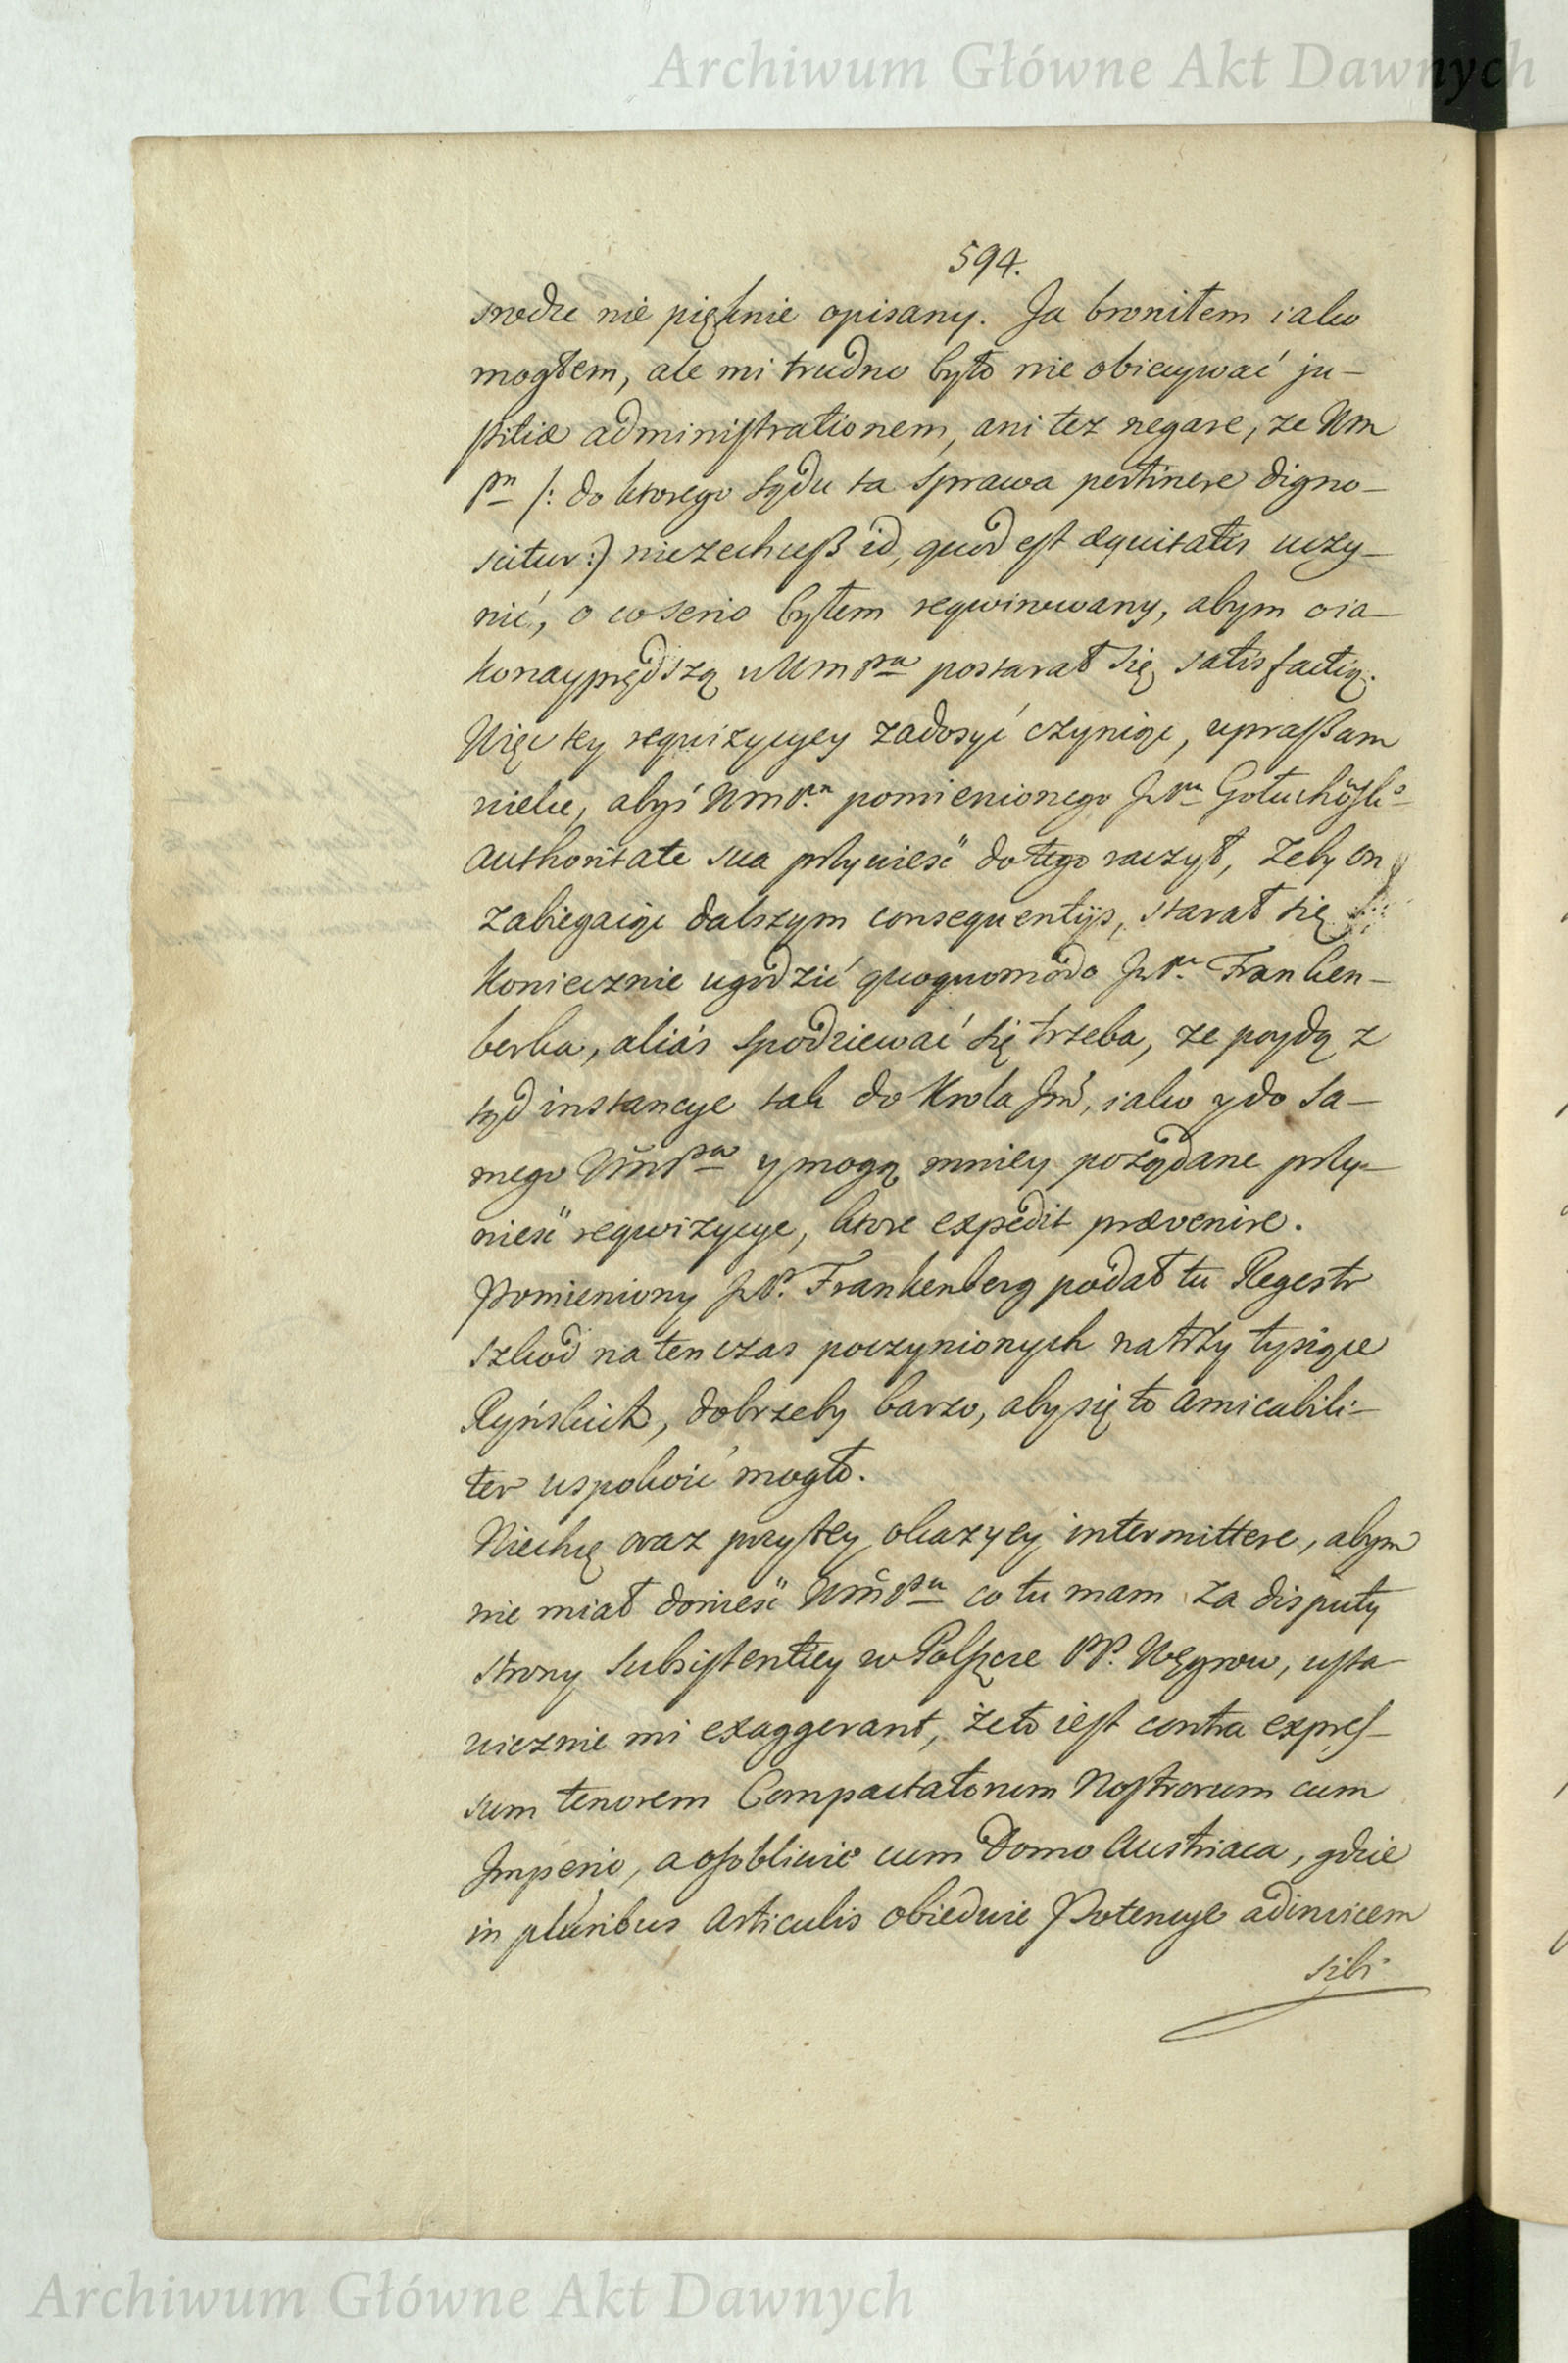 Archiwum Główne Akt Dawnych
594.
srodze nie pięknie opisany. Ja broniłem iako
mogłem, ale mi trudno było nie obiecywać ju-
stitiæ administrationem, ani tez negare, ze Wm
Pn /: do ktorego sądu ta sprawa pertinere digno-
scitur :) niezechcesz id, quod est æquitatis uczy-
nić, o co serio byłem reqwirowany, abym oia-
konayprędszą u Wm Pna postarał się satisfactią.
Więc tey reqwizycyey zadosyć czyniąc, upraszam
wielce, abyś Wm Pan pomienionego JPna Gołuchowsko
authoritate sua przywieść do tego raczył, zeby on
zabiegaiąc dalszym consequentijs, starał się
koniecznie ugodzić quoquomodo JPna Franken-
berka, aliàs spodziewać się trzeba, ze poydą z
tąd instancye tak do Krola Jmć, iako y do Sa-
mego Wm Pna y mogą mniey pożądane przy-
nieść reqwizycye, ktore expedit prævenire.
Pomieniony JP. Frankenberg podał tu Regestr
szkod na ten czas poczynionych na trzy tysiące
Ryńskich, dobrzeby barzo, aby się to amicabili-
ter uspokoić mogło.
Niechcę oraz przy tey okazyey intermittere, abym
nie miał donieść Wm Pnu co tu mam za disputy
strony subsistentiey w Polszcze PP. Węgrow, usta
wicznie mi exaggerant, że to iest contra expres-
sum tenorem Compactatorum Nostrorum cum
Imperio, a osobliwie cum Domo Austriaca, gdzie
in pluribus Articulis obiedwie Potencye adinvicem
sibi
Archiwum Główne Akt Dawnych